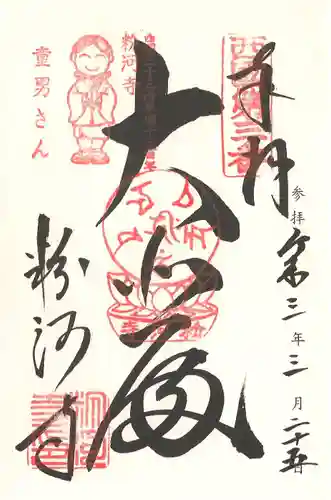 奉拝
西国第三番
参拝 令和三年三月二十五日
大悲殿
粉河寺
童男さん
粉河寺